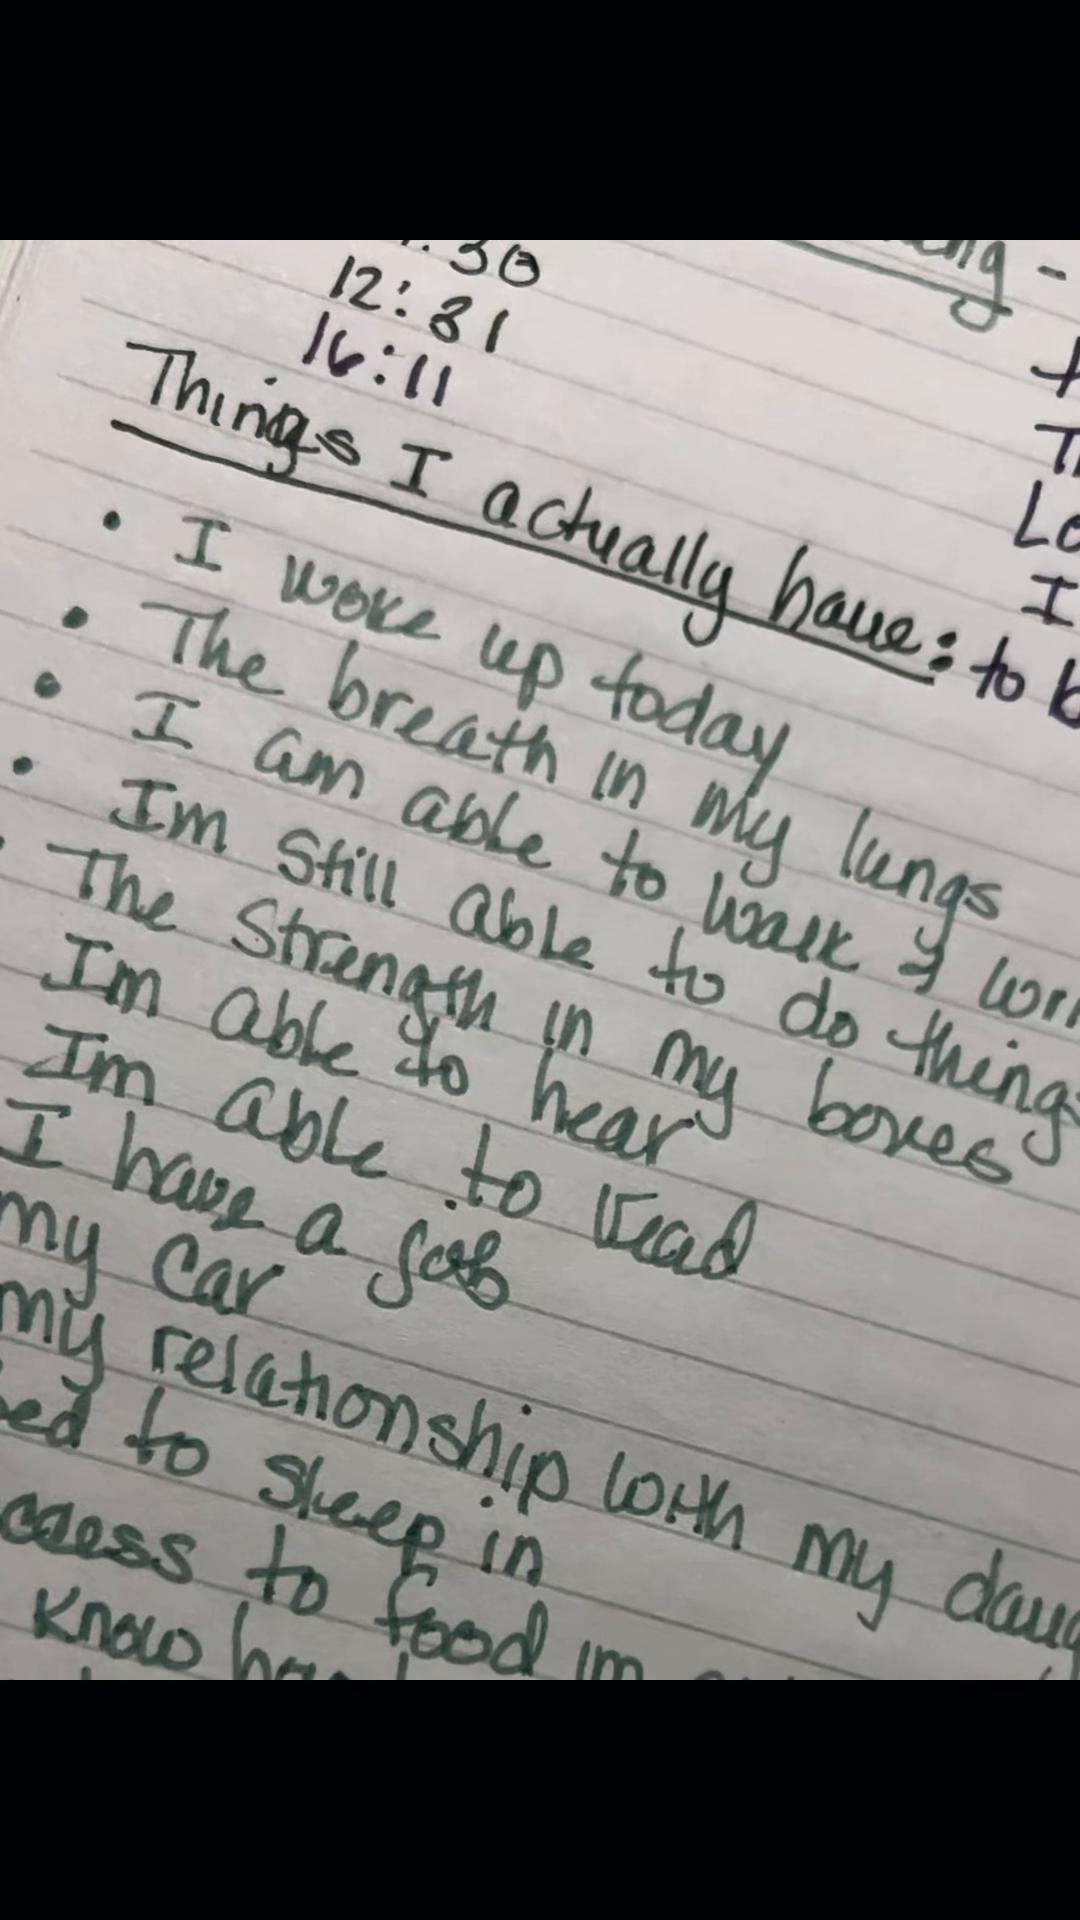 :30
12:31
16:11
Things I actually have: to b
• I woke up today
• The breath in my lungs
• I am able to walk &
• Im Still able to do things
The Strength in my bones
Im able to hear
Im able to read
I have a job
my Car
my relationship with my daug
bed to sleep in
ccess to food im
Know how